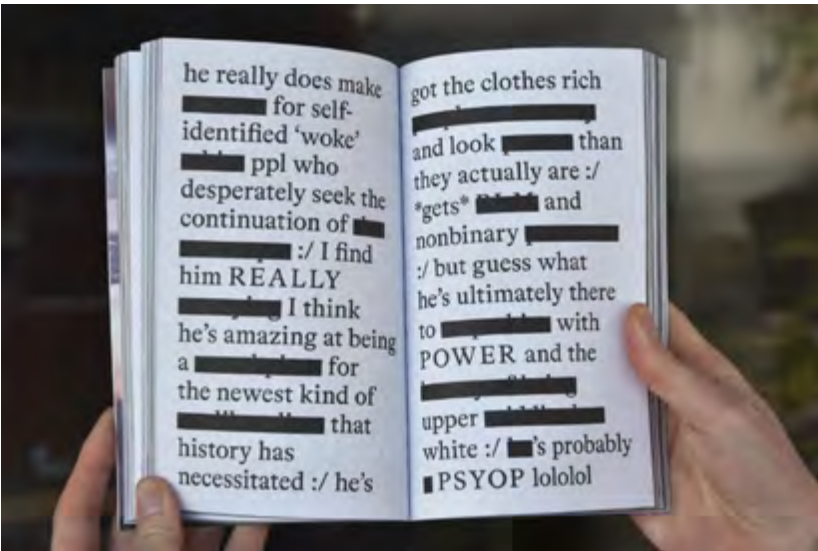 he really does make
for self-
identified ‘woke’
ppl who
desperately seek the
continuation of
:/ I find
him REALLY
I think
he's amazing at being
a for
the newest kind of
that
history has
necessitated :/ he's
got the clothes rich
and look than
they actually are :/
*gets* and
nonbinary
:/ but guess what
he's ultimately there
to with
POWER and the
upper
white :/ 's probably
PSYOP lololol